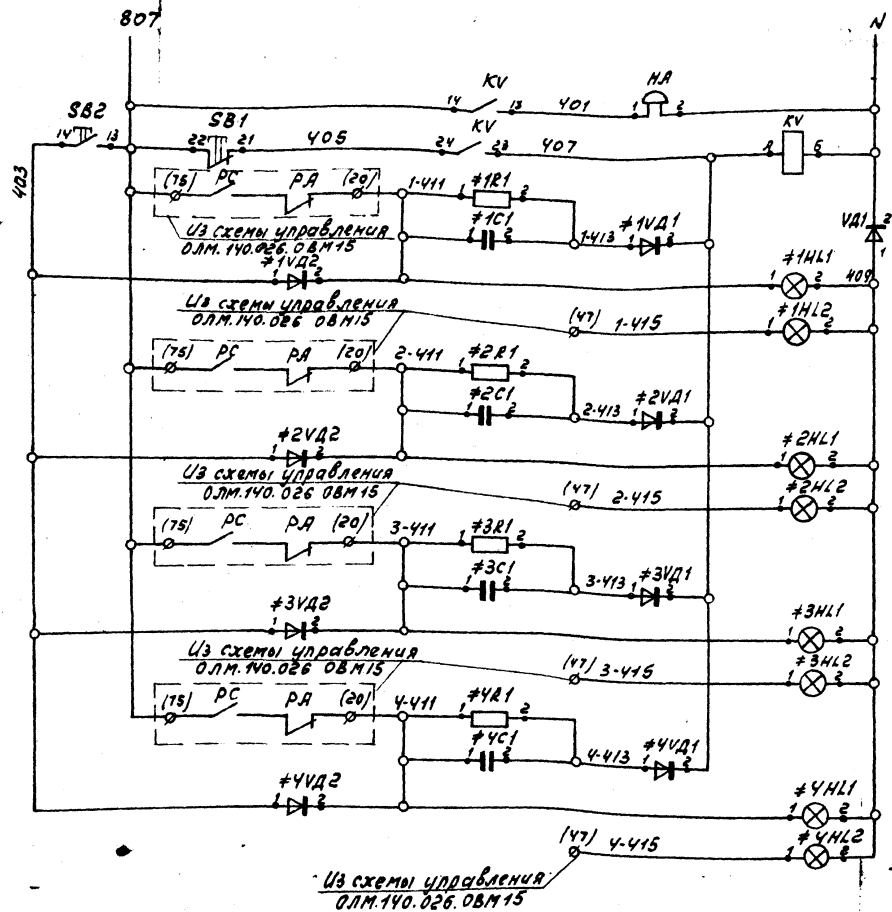 807 N
KV HA
14 13 401 1 2
SB2 SB1 KV KV
14 13 22 21 405 24 23 407 8 6
403
(75) РС РА (20) 1-411 1 ≠1R1 2
Из схемы управления
ОЛМ.140.026.0ВМ15
1 ≠1C1 2 1-413 1 ≠1VД1 2
VД1 2
1
≠1VД2
1 2
≠1HL1
1 2 409
Из схемы управления
ОЛМ.140.026 0ВМ15
(47) 1-415 1 ≠1HL2 2
(75) РС РА (20) 2-411 1 ≠2R1 2
1 ≠2C1 2 2-413 1 ≠2VД1 2
≠2VД2
1 2
≠2HL1
1 2
Из схемы управления
ОЛМ.140.026 0ВМ15
(47) 2-415 1 ≠2HL2 2
(75) РС РА (20) 3-411 1 ≠3R1 2
1 ≠3C1 2 3-413 1 ≠3VД1 2
≠3VД2
1 2
≠3HL1
1 2
Из схемы управления
ОЛМ.140.026 0ВМ15
(47) 3-415 1 ≠3HL2 2
(75) РС РА (20) 4-411 1 ≠4R1 2
1 ≠4C1 2 4-413 1 ≠4VД1 2
≠4VД2
1 2
≠4HL1
1 2
(47) 4-415 1 ≠4HL2 2
Из схемы управления
ОЛМ.140.026.0ВМ15